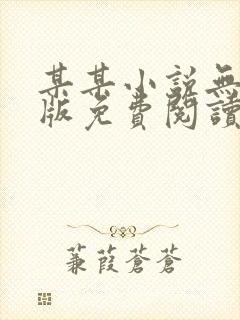 某某小說無
版免費閱讀
蒹葭蒼蒼